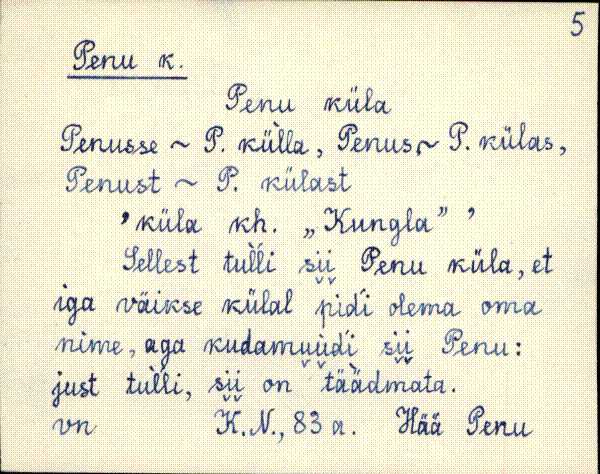 5
Penu k.
Penu küla
Penusse ~ P. kül̀la, Penus ~ P. külas,
Penust ~ P. külast
'küla kh. „Kungla” '
Sellest tul̀li sii Penu küla, et
iga väikse külal pid́i olema oma
nime, aga kudamuùdi sii Penu:
just tul̀li, sii on tääd̀mata.
vn K.N., 83 a. Hää Penu